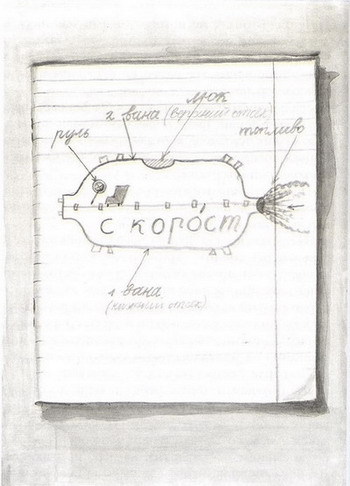 люк
2 вана (верхний отсек)
руль
топливо
с корост
1 вана
(нижний отсек)